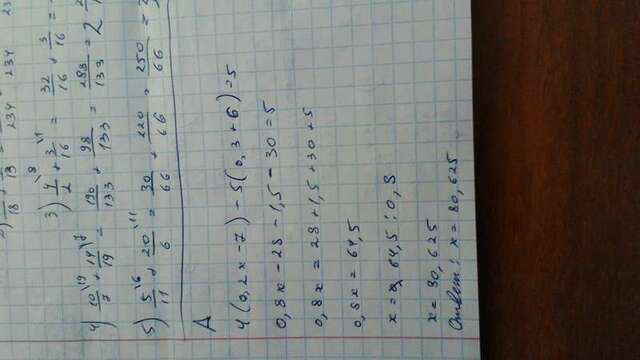 3) 4\8/2 + 3\1/16 = 32/16 + 3/16 =
4) 10\19/7 + 14\7/19 = 190/133 + 98/133 = 283/133 = 2
5) 5\6/11 + 20\11/6 = 30/66 + 220/66 = 250/66 =
А
4(0,2x-7)-5(0,3+6)=5
0,8x-28-1,5-30=5
0,8x=28+1,5+30+5
0,8x=64,5
x=64,5:0,8
x=80,625
Ответ: x=80,625